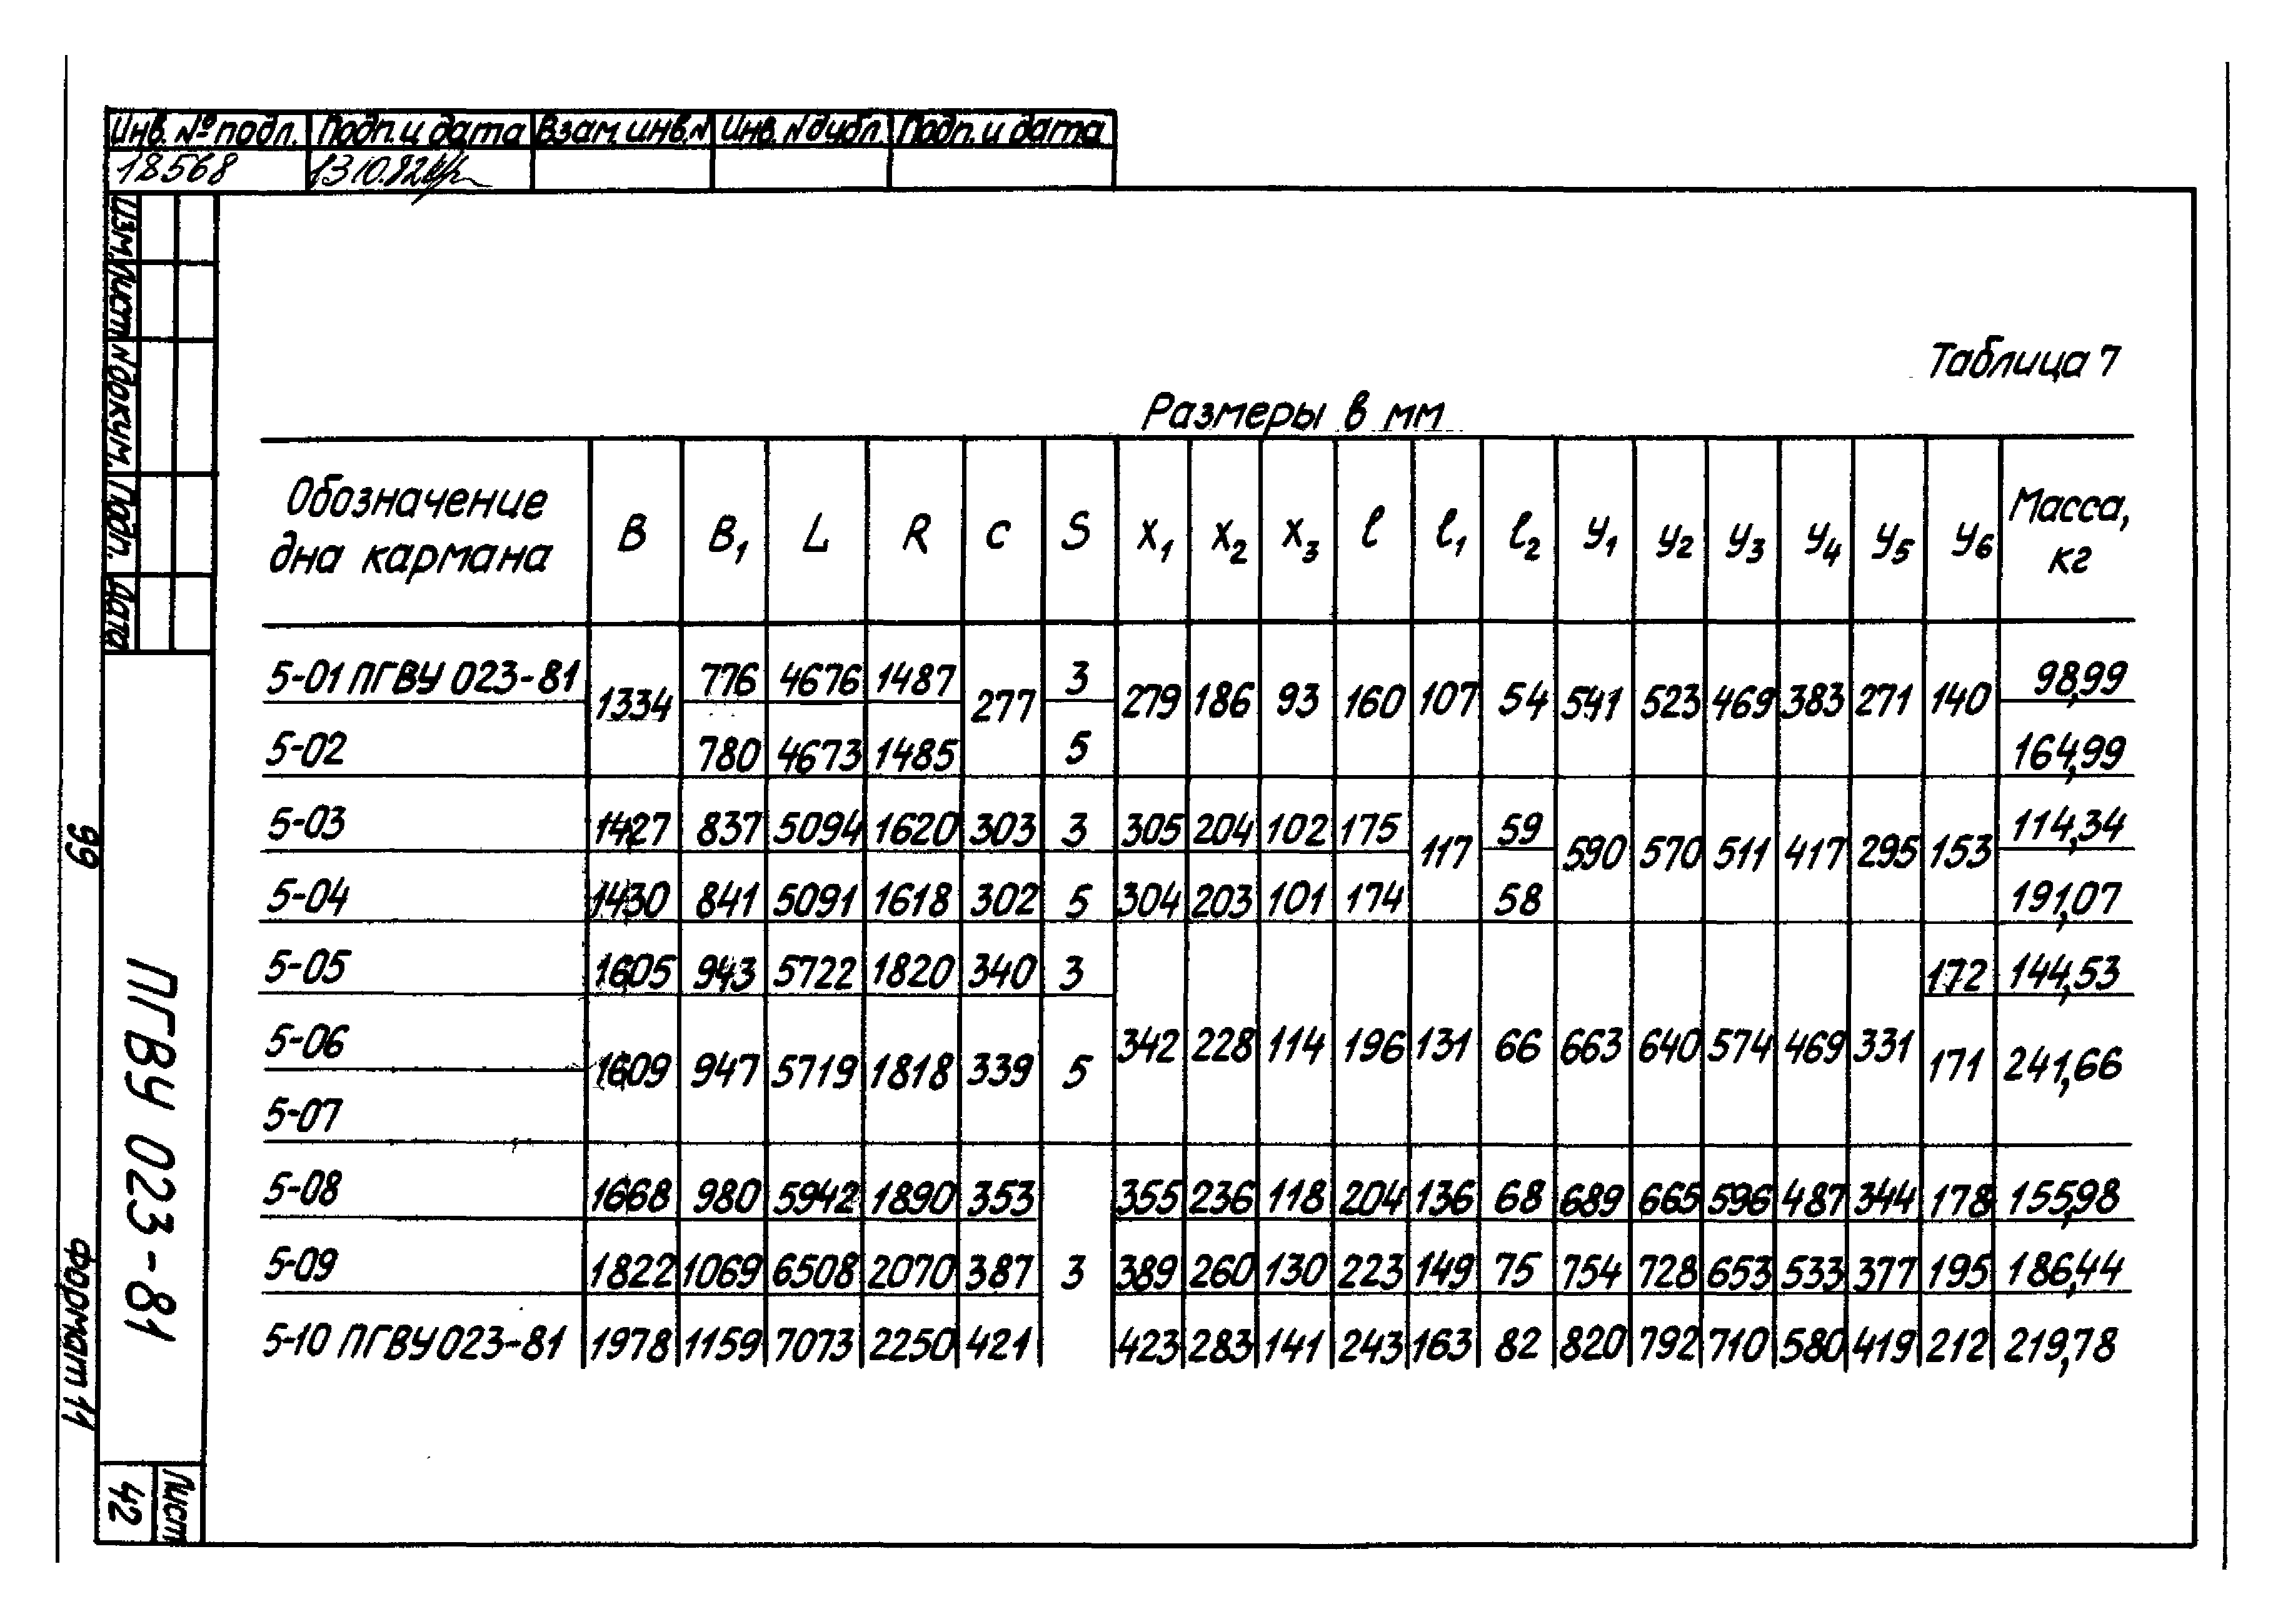 Инв. № подл. Подп. и дата Взам. инв. N Инв. N дубл. Подп. и дата
18568 13.10.82
Изм. Лист N докум. Подп. Дата
Таблица 7
Размеры в мм
Обозначение дна кармана B B1 L R c S x1 x2 x3 ℓ ℓ1 ℓ2 y1 y2 y3 y4 y5 y6 Масса, кг
5-01 ПГВУ 023-81 1334 776 4676 1487 277 3 279 186 93 160 107 54 541 523 469 383 271 140 98,99
5-02 780 4673 1485 5 164,99
5-03 1427 837 5094 1620 303 3 305 204 102 175 117 59 590 570 511 417 295 153 114,34
5-04 1430 841 5091 1618 302 5 304 203 101 174 58 191,07
5-05 1605 943 5722 1820 340 3 172 144,53
5-06 1609 947 5719 1818 339 5 342 228 114 196 131 66 663 640 574 469 331 171 241,66
5-07
5-08 1668 980 5942 1890 353 355 236 118 204 136 68 689 665 596 487 344 178 155,98
5-09 1822 1069 6508 2070 387 3 389 260 130 223 149 75 754 728 653 533 377 195 186,44
5-10 ПГВУ 023-81 1978 1159 7073 2250 421 423 283 141 243 163 82 820 792 710 580 419 212 219,78
99
ПГВУ 023-81
Формат 11
Лист
42